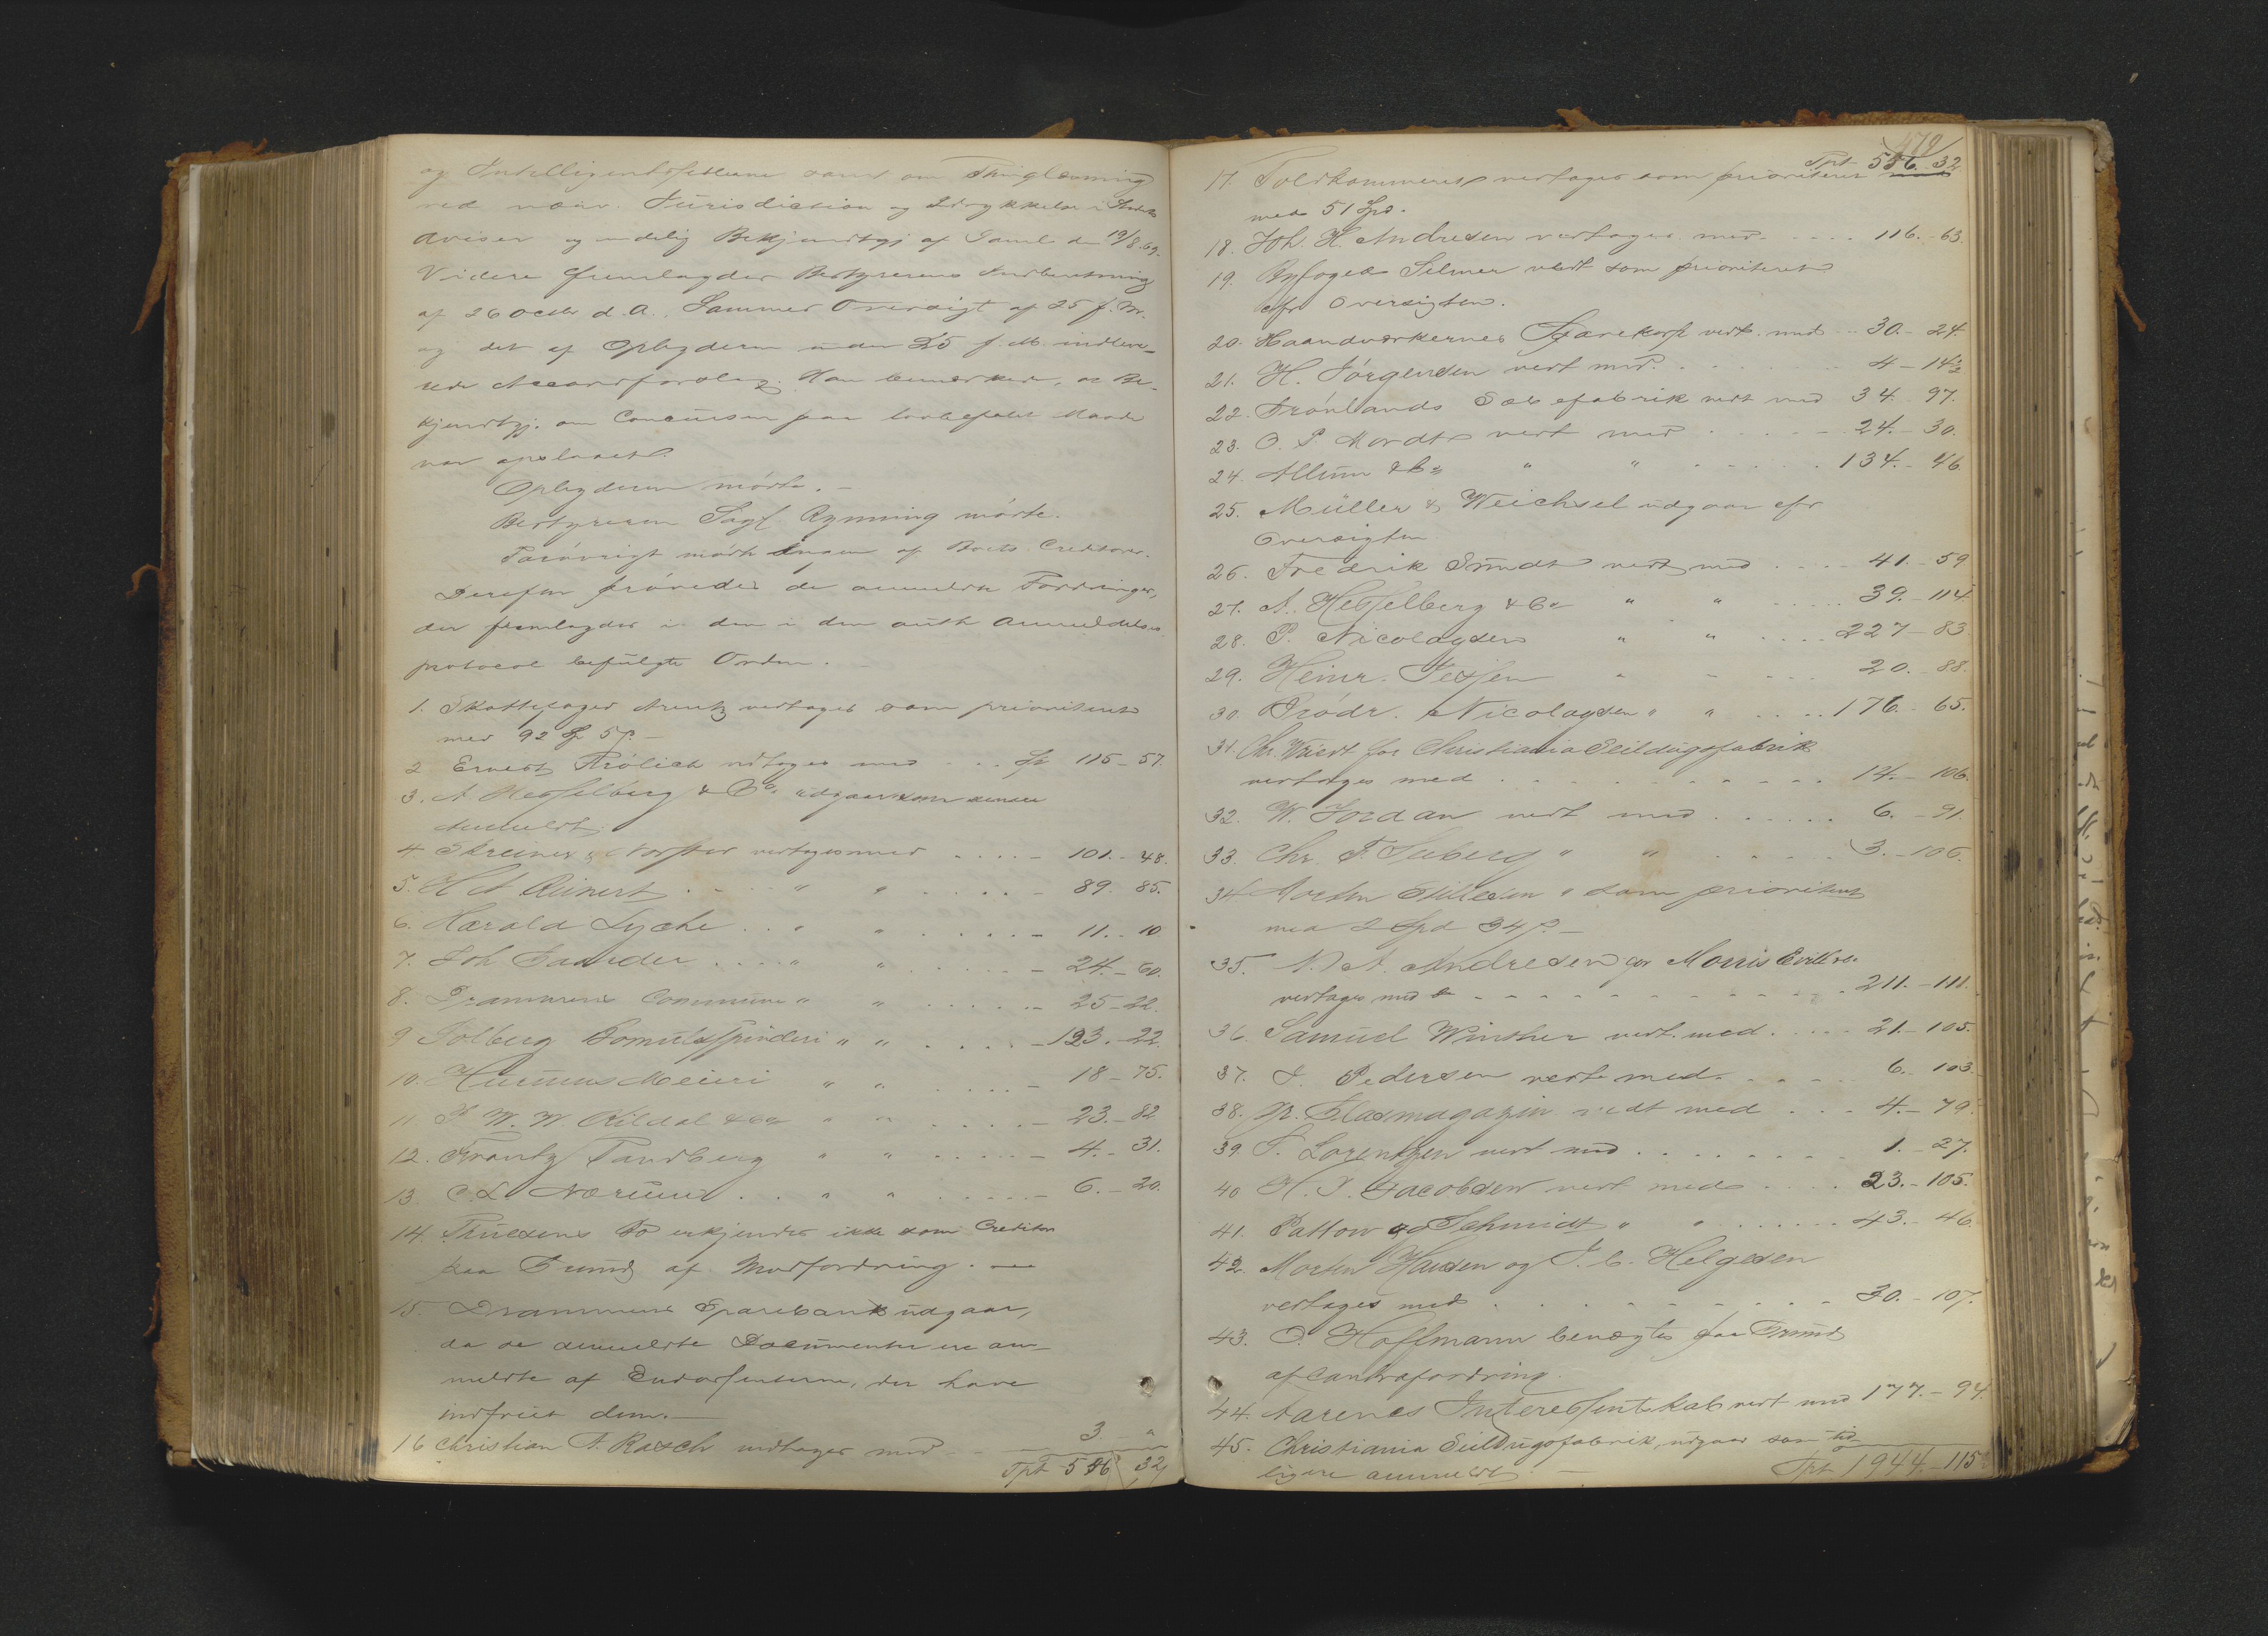 og Intelligentssedlerne samt om Thinglæsning
ved nærv. Jurisdiction og Indrykkelse i Stedets
Aviser og endelig Bekjendtgj. af Saml. den 19/8.69.
Videre fremlagdes Bestyrerens Indberetning
af 26 Octbr d. A., Sammes Oversigt af 25 f. M.
og det af Opbyderen under 25 f. M. indleve-
rede Accordforslag. Han bemærkede, at Be-
kjendtgj. om Concursen paa lovbefalet Maade
var opslaaet.
Opbyderen mødte. –
Bestyreren Sagf. Rynning mødte.
Forøvrigt mødte Ingen af Boets Creditorer.
Derefter prøvedes de anmeldte Fordringer,
der fremlagdes i den i den auth Anmeldelses-
protocol befulgte Orden.
1. Skattefoged Arentz vedtages som prioriteret
med 92 Sp 5 β. –
2 Ernest Frölich vedtages med . . . Sp 115 – 57.
3. A. Hesselberg & Co. udgaar som senere
Anmeldt.
4 Skreiner & vedtages med . . . . – 101. – 48.
5. H A Reinert . . . " " . . . . – 89. 85.
6. Harald Lyche . . " " . . . . – 11. – 10
7. Joh. . . . " " . . . . – 24. – 60.
8. Drammens Commune " " . . . . – 25 – 22.
9 Solberg Bomuldsspinderi " " . . . . – 123. – 22.
10. Meieri " " . . . . – 18 – 75.
11. P. W. W. Kildal & Co " " . . . . – 23. – 82
12. Frantz Tandberg " " . . . . – 4. – 31.
13. C. L. Nærum . . " " . . . . – 6. – 20.
14. Truelsens Bo erkjendes ikke som Creditor
paa Grund af Modfordring. –
15. Drammens Sparebank udgaar,
da de anmeldte Documenter ere an-
meldte af Endossenterne, der have
indfriet dem. –
16 Christian A. Rasch vedtages med – – 3 – "
Tpt 556 32
479
Tpt 556. 32.
17. Toldkammeret vedtages som prioriteret
med 51 Spd.
18. Joh. H. Andresen vedtages med . . . . 116. – 63.
19. Byfoged Selmer vedt som prioriteret
cfr Oversigten.
20. Haandværkernes vedt. med . . 30. – 24.
21. H. Jörgensen vedt med . . . . . 4 – 14½
22. Grønlands Sæbefabrik vedt med 34. 97.
23. O. P. Mordt vedt med . . . . – 24. – 30.
24. Allum & Co " " . . . . . 134. – 46.
25. Müller & Weichsel udgaar cfr
Oversigten
26. Fredrik Smidt vedt med . . . . 41. – 59
27. A. Hesselberg & Co " " . . . . 39. – 114
28. P. Nicolaysen " " . . . . 227 – 83.
29. Heinr. Jessen " – . . . 20. – 88.
30 Brödr. Nicolaysen " " . . . . 176. – 65.
31. Chr. Wriedt for Christiania Seildugsfabrik
vedtages med . . . . . . . . . 14. – 106.
32. W. Jordan vedt med . . . . . . 6. – 91.
33. Chr. F. " " . . . . . 3. – 106.
34 Morten Stillesen " som prioriteret
med 2 Spd 34 β. –
35. N. A. Andresen for Morris
vedtages med . . . . . . . . . 211. – 111.
36 Samuel Winther vedt. med . . . . 21. – 105.
37. J. Pedersen vedt. med . . . . . 6. – 103.
38. Glasmagazin vedt med . . . 4. – 79.
39. F. Lorentzen vedt med . . . . . . . . 1. – 27.
40 H. P. Jacobsen vedt med . . . . 23. – 105.
41. Pattow og Schmidt " " . . . . . 43. – 46.
42. Morten Hansen og J. C. Helgesen
vedtages med . . . . . . . . . – 30. – 107.
43. O. Hoffmann benægtes paa Grund
af Contrafordring.
44. Aarenes Interessentskab vedt med 177. – 94.
45. Christiania Seildugsfabrik, udgaar som tid-
ligere anmeldt. – Tpt 1944. – 115